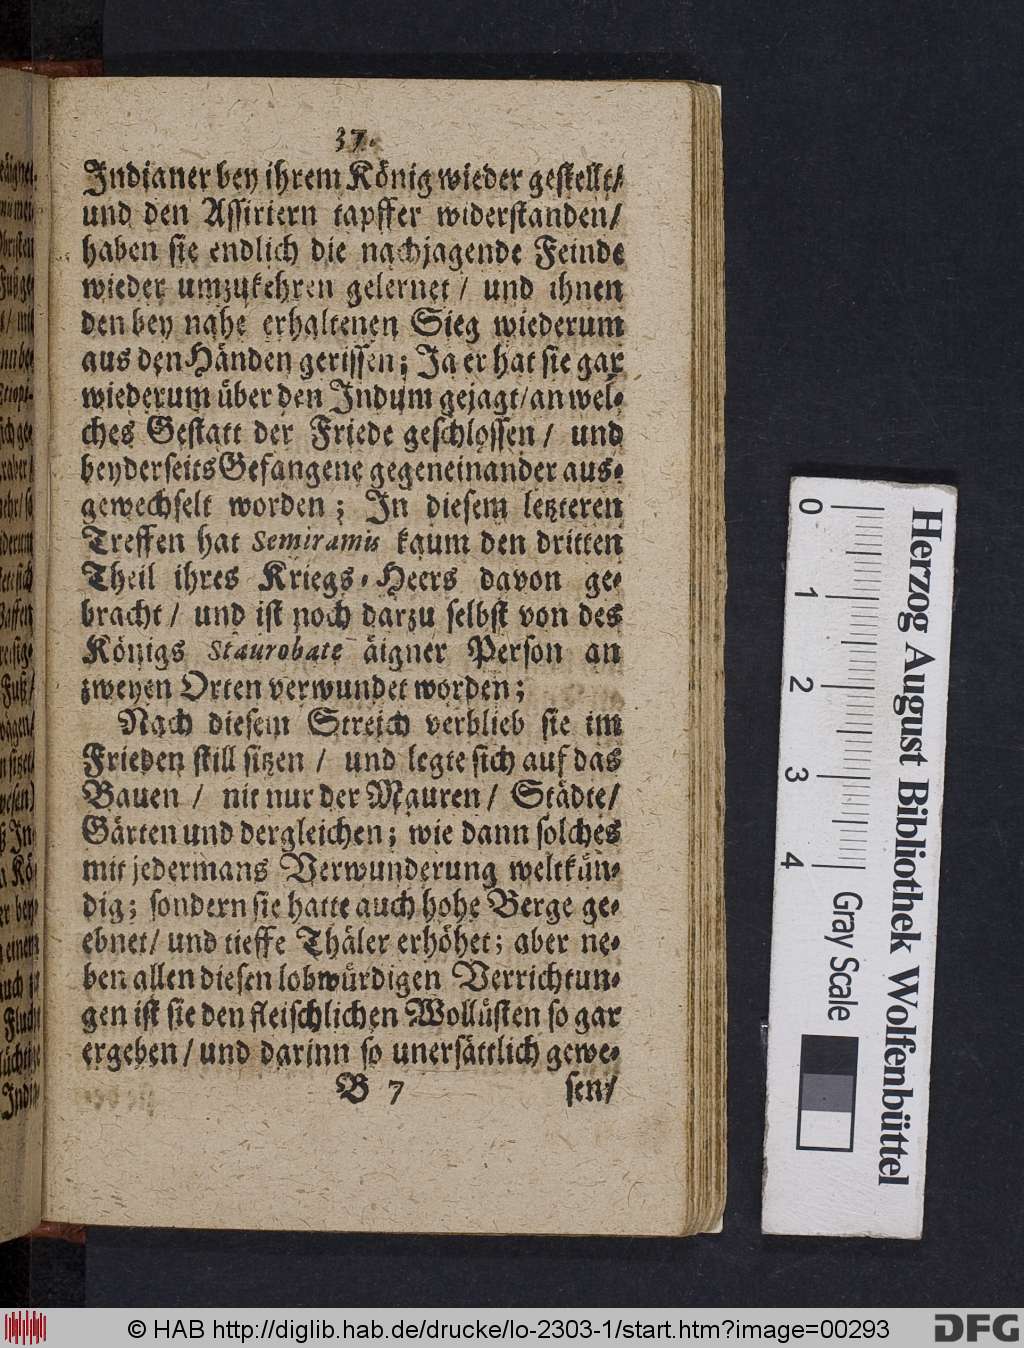 37.
Indianer bey ihrem König wieder gestellt/
und den Assiriern tapffer widerstanden/
haben sie endlich die nachjagende Feinde
wieder umzukehren gelernet / und ihnen
den bey nahe erhaltenen Sieg wiederum
aus den Händen gerissen; Ja er hat sie gar
wiederum über den Indum gejagt/an wel-
ches Gestatt der Friede geschlossen / und
beyderseits Gefangene gegeneinander aus-
gewechselt worden; In diesem letzteren
Treffen hat Semiramis kaum den dritten
Theil ihres Kriegs-Heers davon ge-
bracht / und ist noch darzu selbst von des
Königs Staurobate äigner Person an
zweyen Orten verwundet worden;
Nach diesem Streich verblieb sie im
Frieden still sitzen / und legte sich auf das
Bauen / nit nur der Mauren / Städte/
Gärten und dergleichen; wie dann solches
mit jedermans Verwunderung weltkün-
dig; sondern sie hatte auch hohe Berge ge-
ebnet/ und tieffe Thäler erhöhet; aber ne-
ben allen diesen lobwürdigen Verrichtun-
gen ist sie den fleischlichen Wollüsten so gar
ergeben / und darinn so unersättlich gewe-
B 7 sen/
0 1 2 3 4
Gray Scale
Herzog August Bibliothek Wolfenbüttel
© HAB http://diglib.hab.de/drucke/lo-2303-1/start.htm?image=00293
DFG